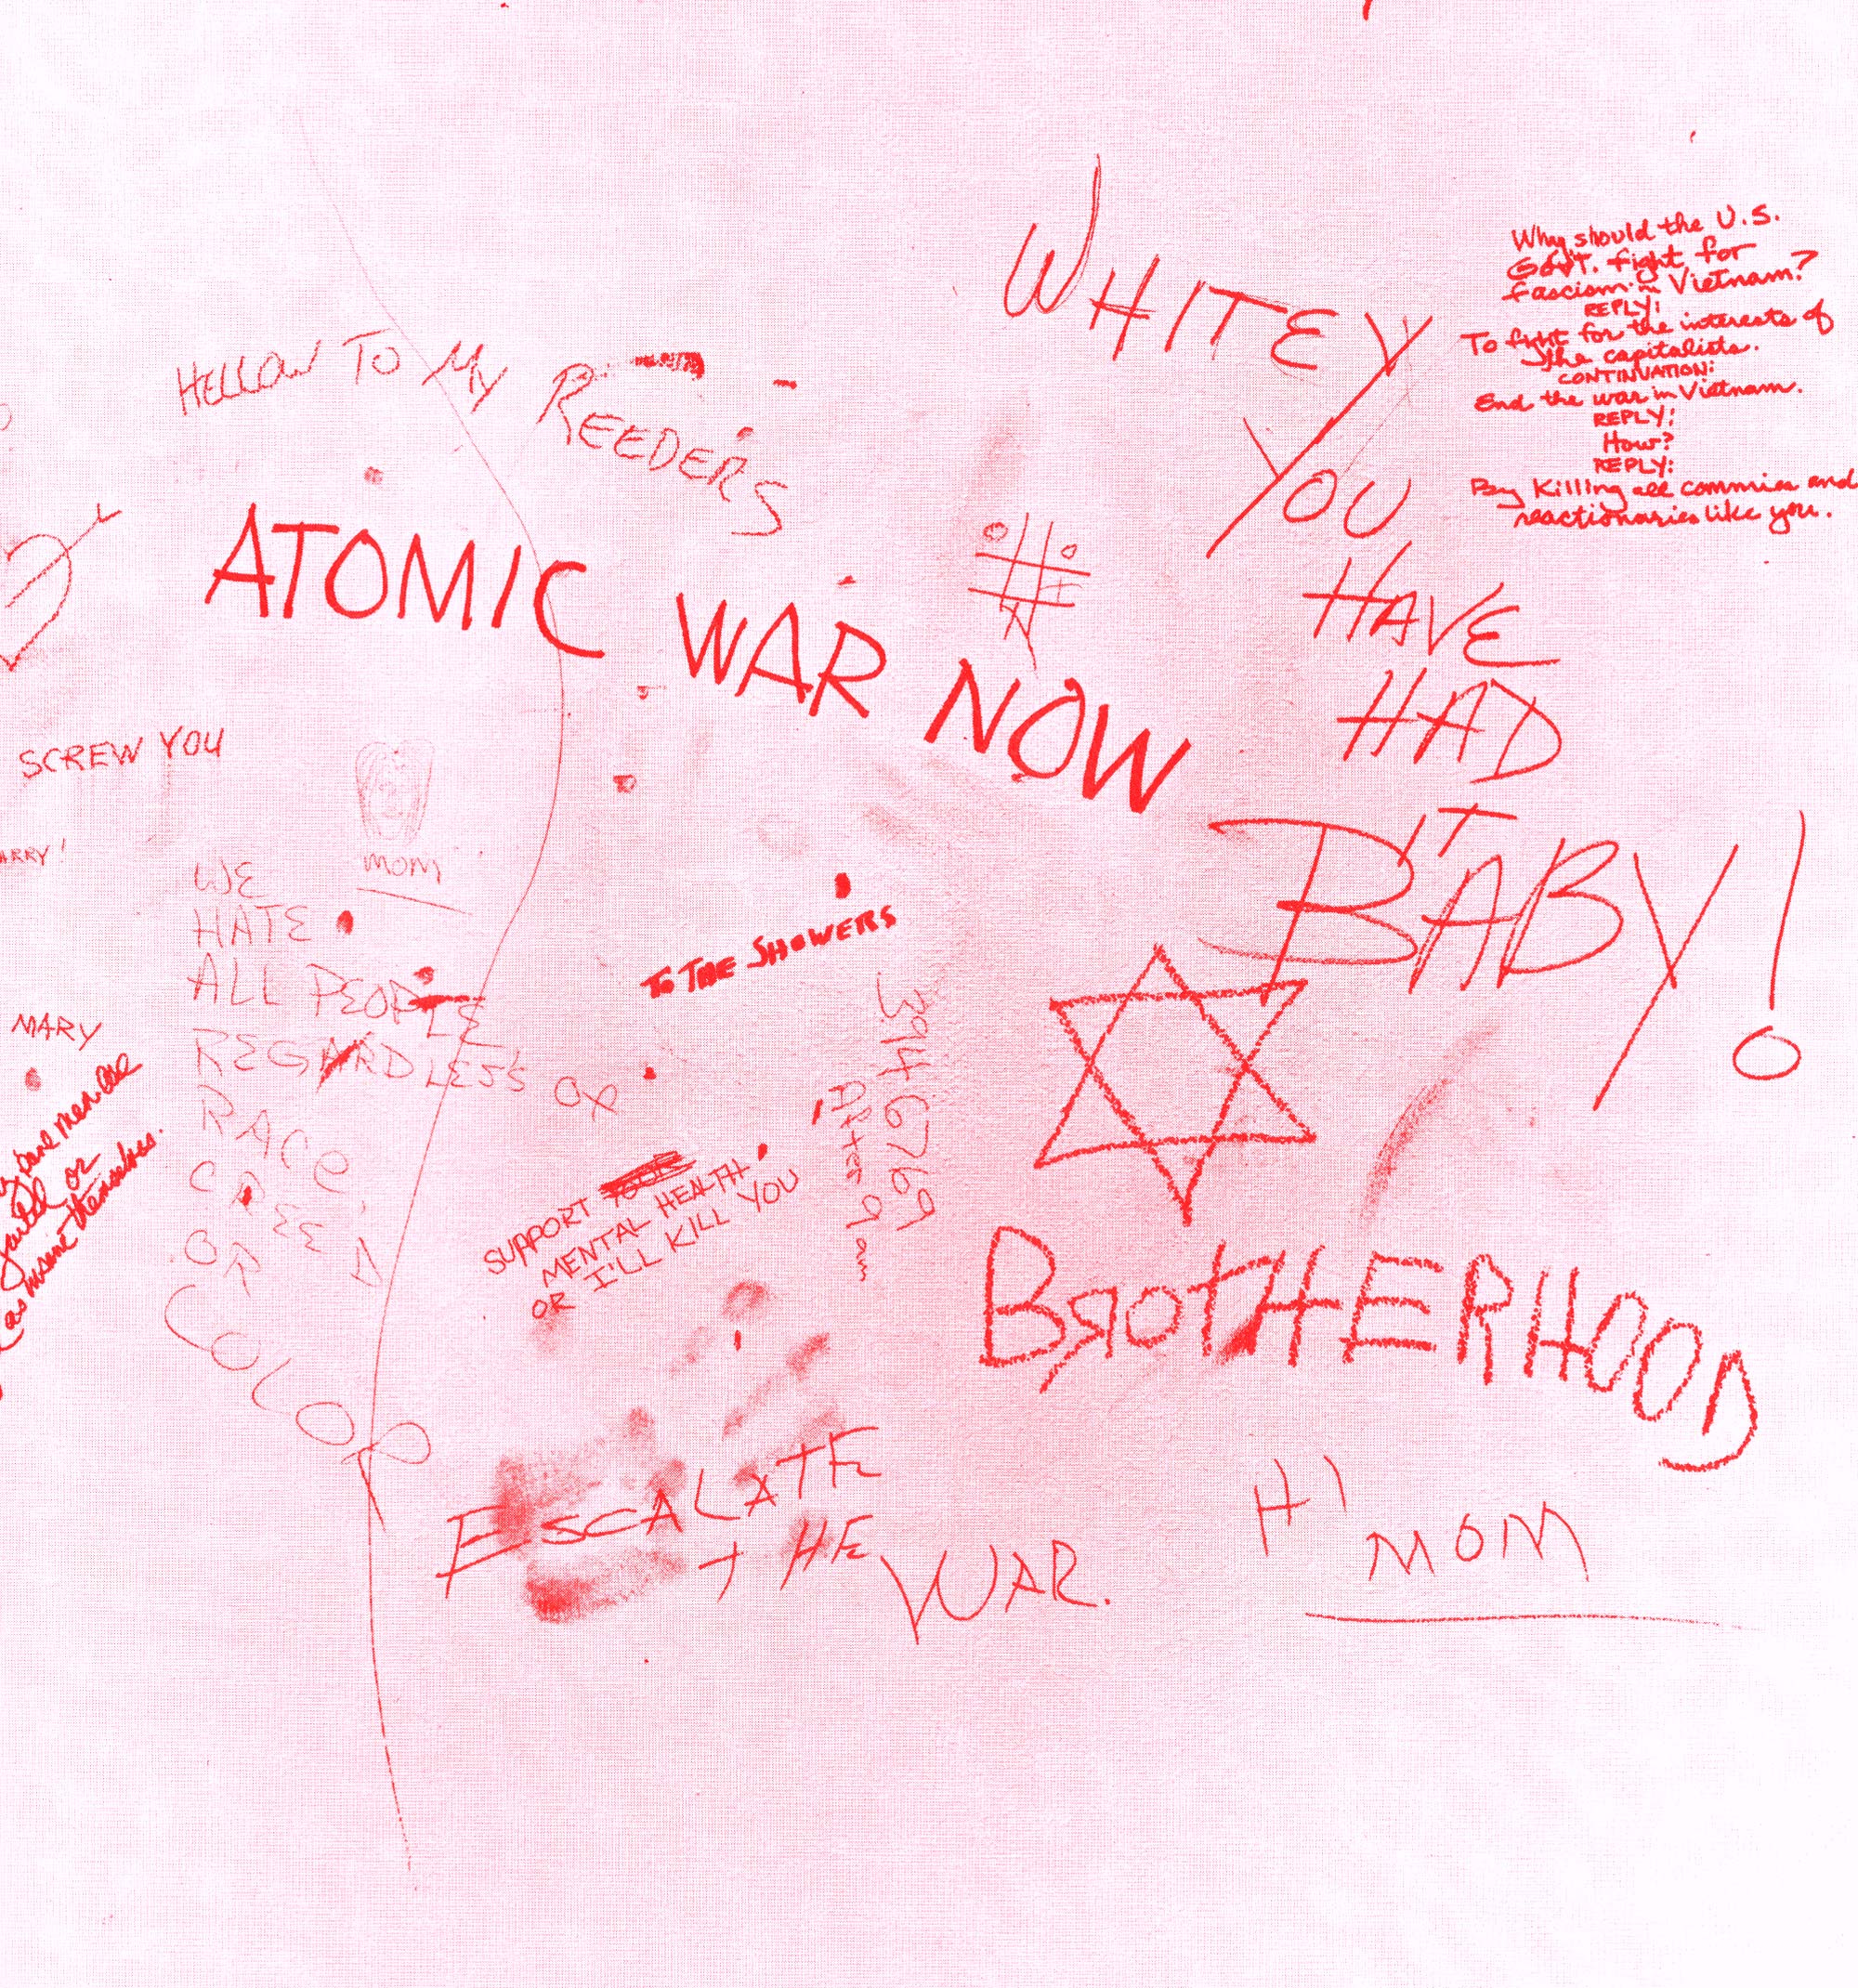 HELLOW TO MY REEDER'S
ATOMIC WAR NOW
SCREW YOU
ARRY!
MOM
WE
HATE
ALL PEOPLE
REGARDLESS OF
RACE,
CREED
OR
COLOR
MARY
men are
or
insane themselves.
TO THE SHOWERS
394 6769
After 9 am
SUPPORT YOUR
MENTAL HEALTH
OR I'LL KILL YOU
ESCALATE
THE
WAR.
WHITEY
YOU
HAVE
HAD
IT
BABY!
Why should the U.S.
Gov't. fight for
fascism in Vietnam?
REPLY:
To fight for the interests of
the capitalists.
CONTINUATION:
End the war in Vietnam.
REPLY:
How?
REPLY:
By Killing all commies and
reactionaries like you.
BROTHERHOOD
HI
MOM